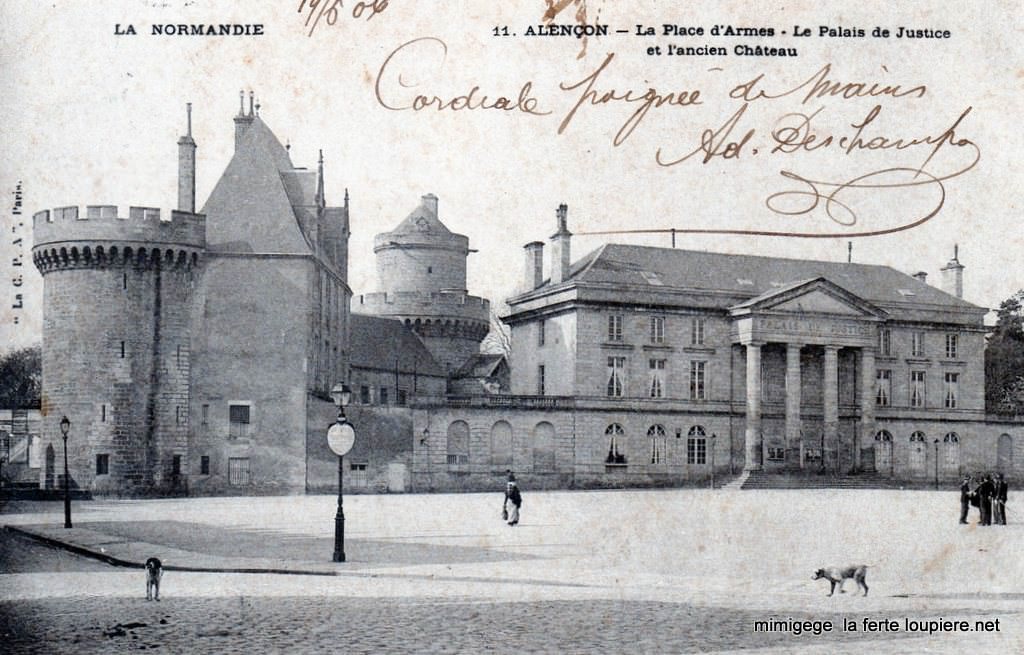 LA NORMANDIE
11. ALENÇON — La Place d'Armes - Le Palais de Justice
et l'ancien Château
Cordiale poignée de mains
Ad. Deschamps
" La C. P. A ", Paris.
PALAIS DE JUSTICE
mimigege la ferte loupiere.net